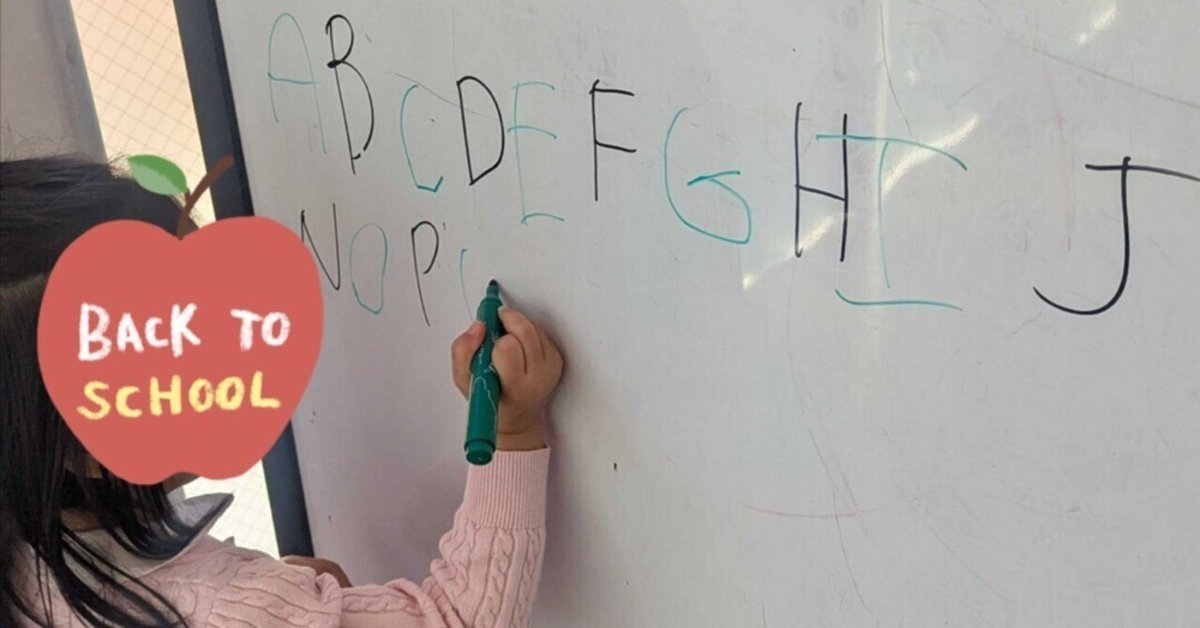 A B C D E F G H I J
N O P
BACK TO
SCHOOL